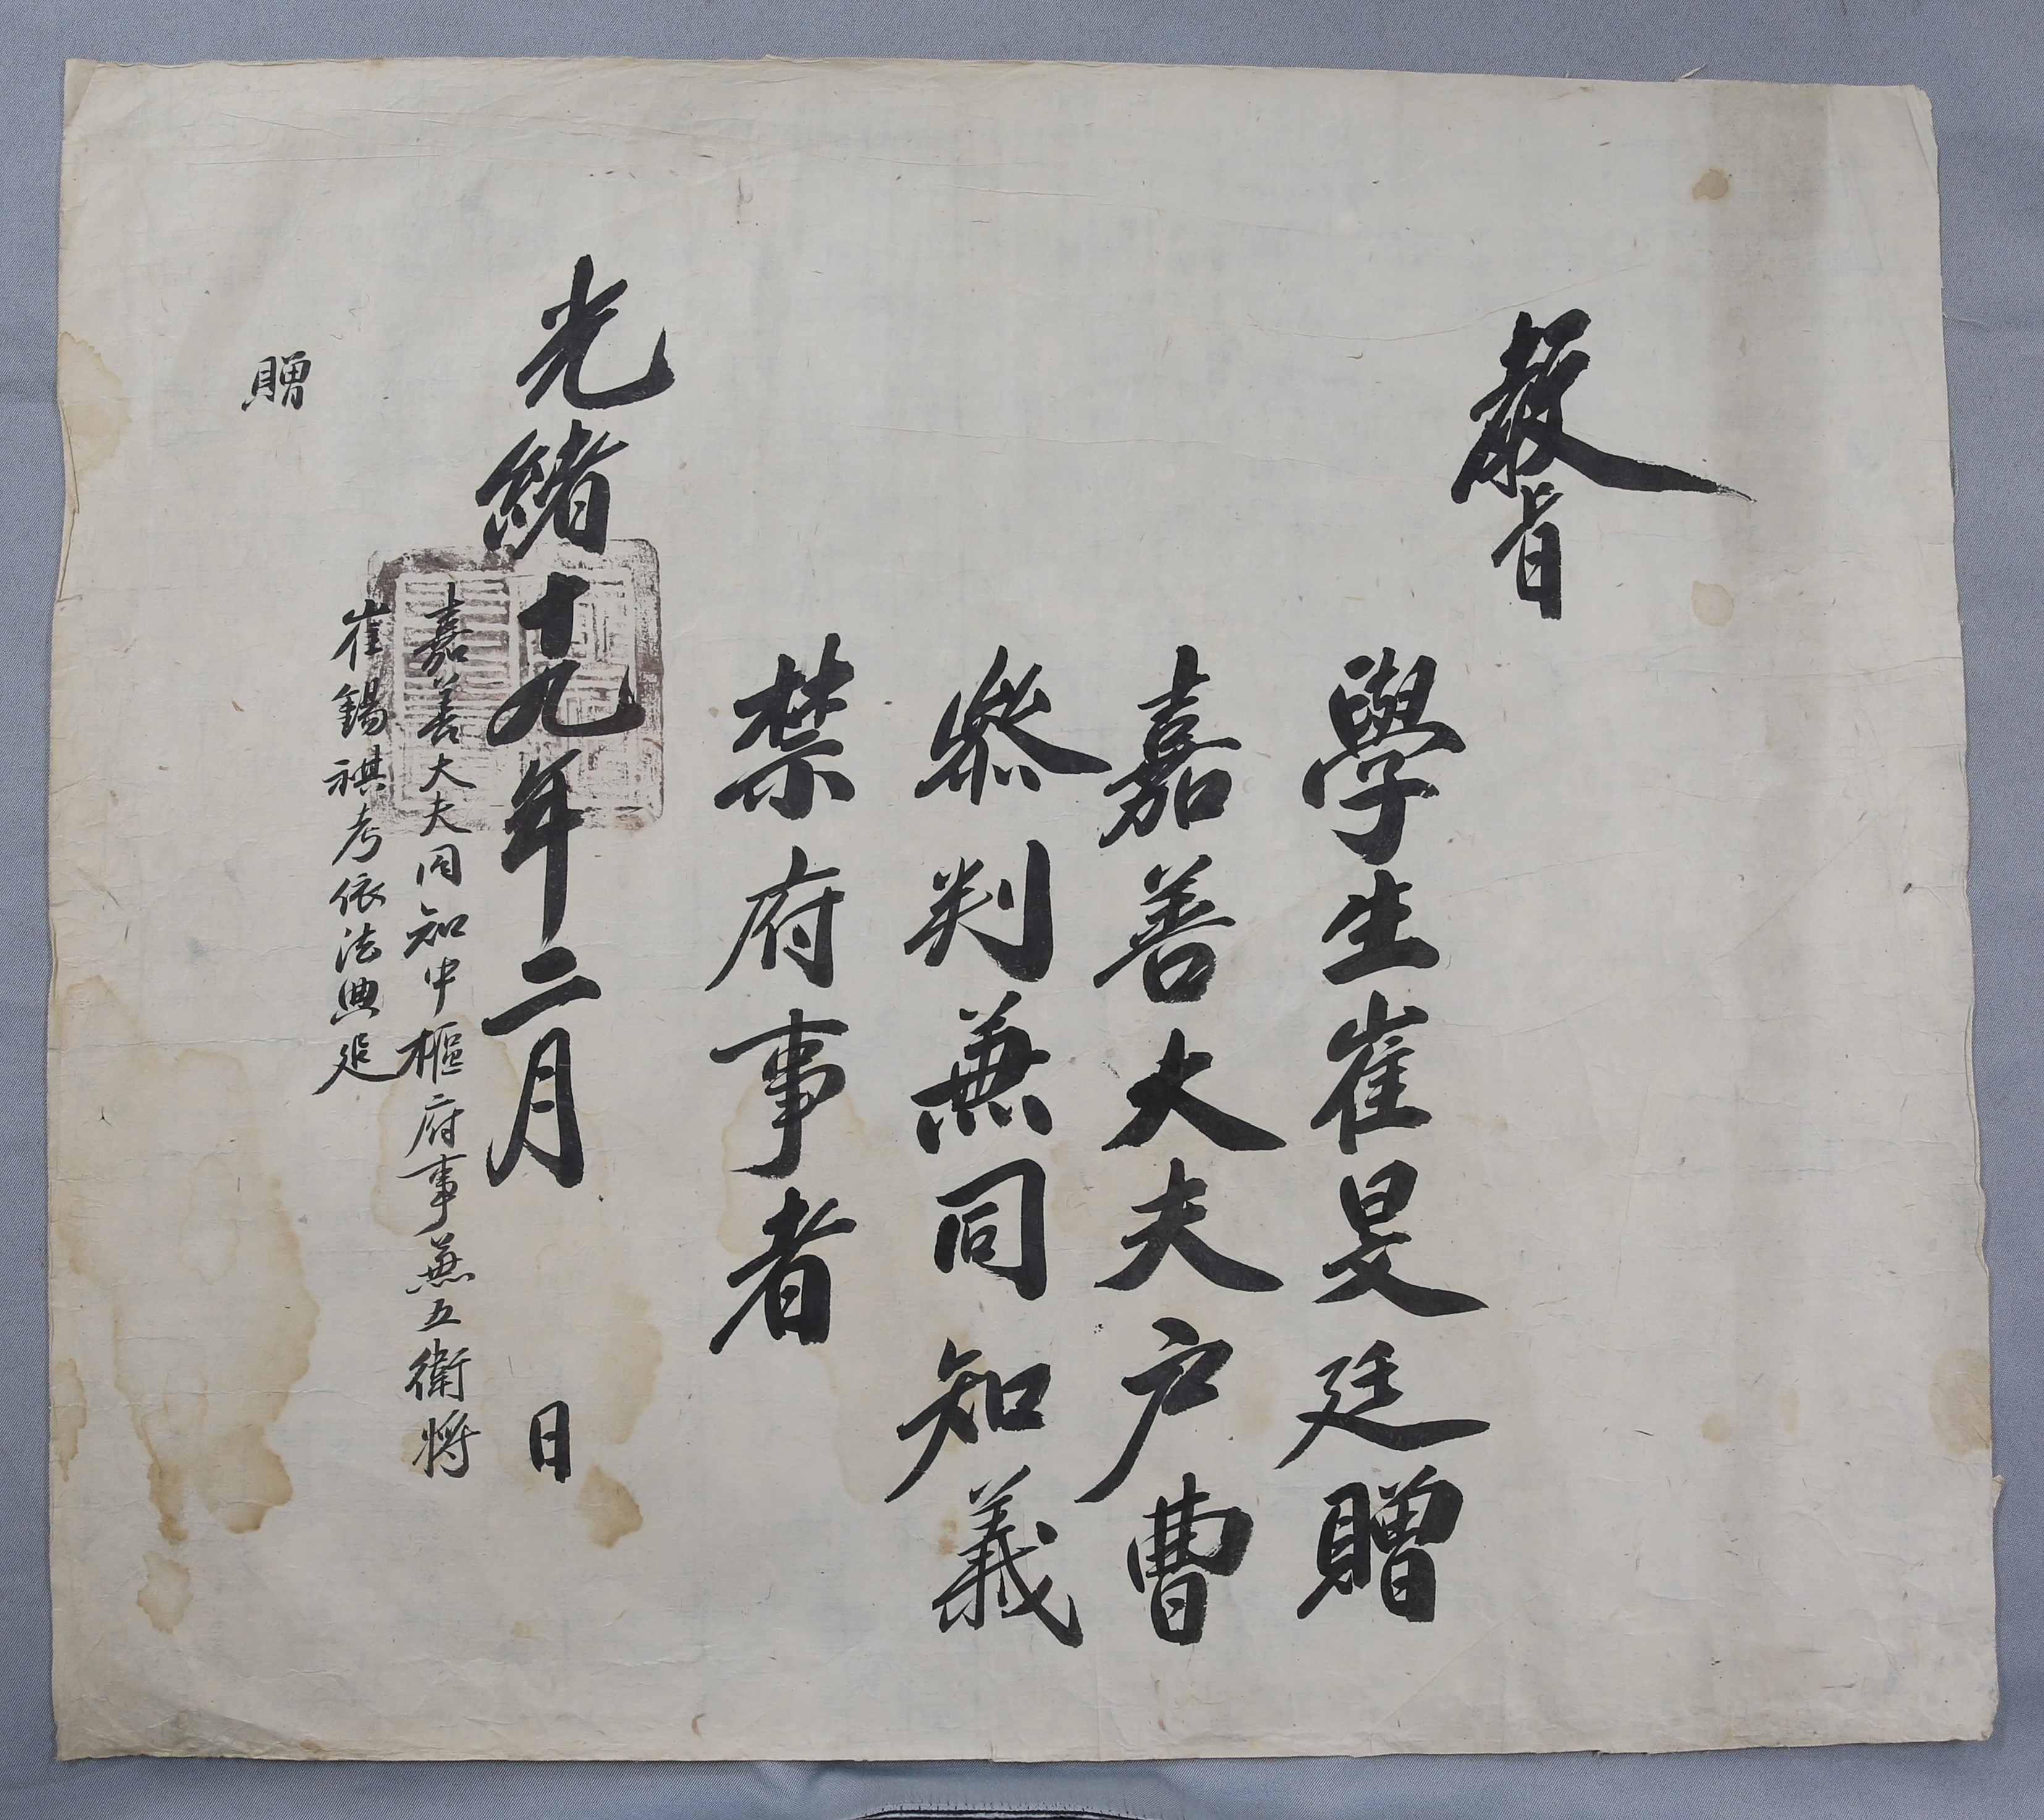 敎旨
學生崔旻廷贈
嘉善大夫户曹
叅判兼同知義
禁府事者
光緖十九年二月 日
嘉善大夫同知中樞府事兼五衛將
崔錫祺考依法典追
贈